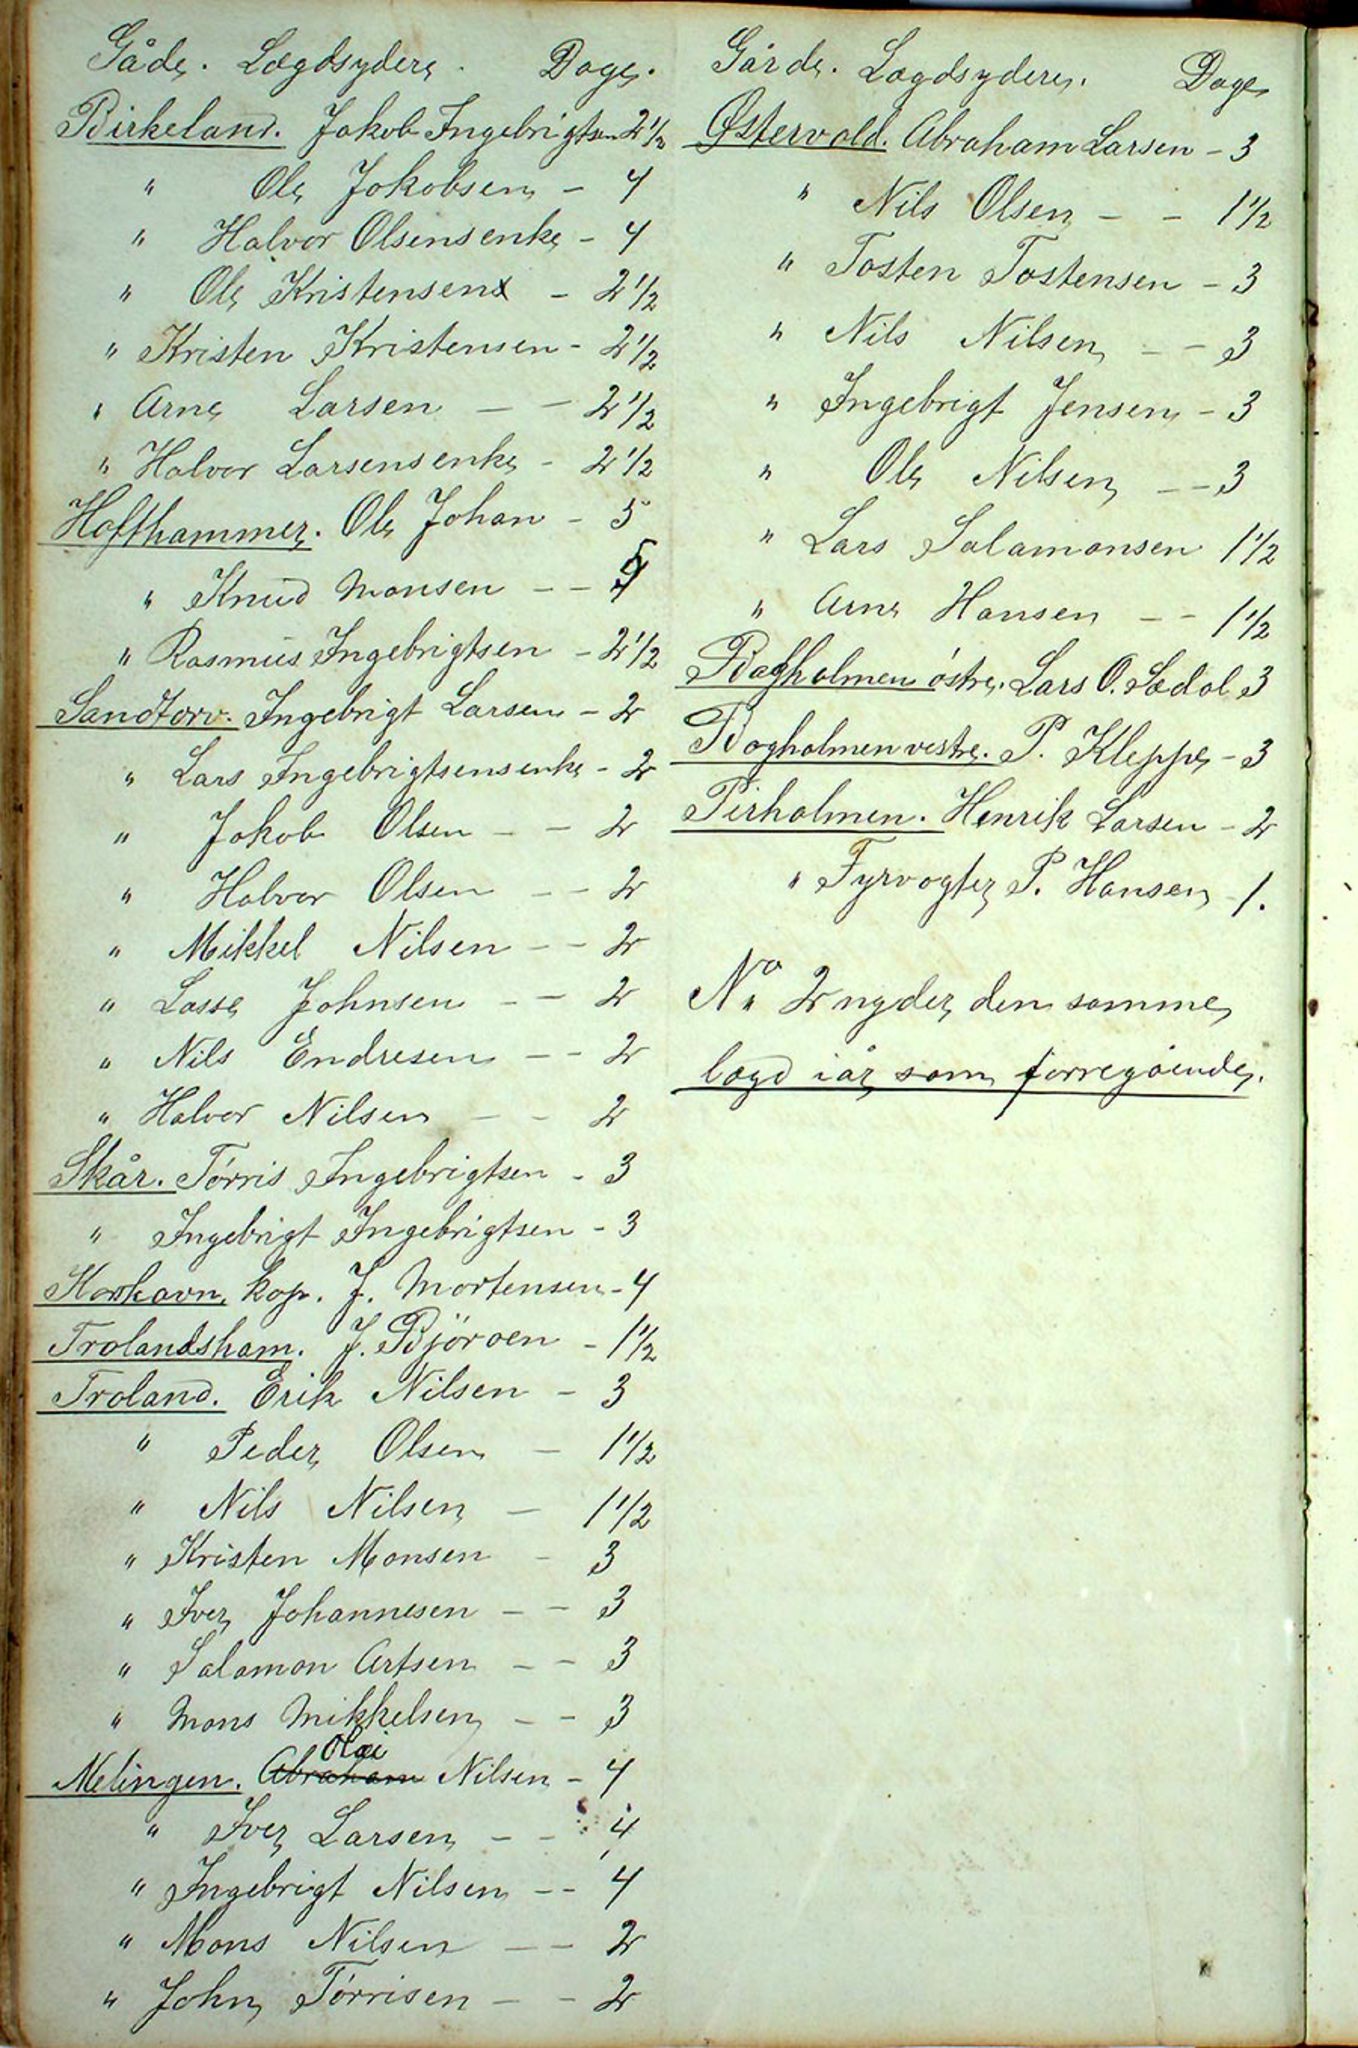 Gåde. Lægdsydere. Dage.
Birkeland. Jakob Ingebrigtsen 2 1/2
" Ole Jakobsen - 4
" Halvor Olsens enke - 4
" Ole Kristensen - 2 1/2
" Kristen Kristensen - 2 1/2
" Arne Larsen - - 2 1/2
" Halvor Larsens enke - 2 1/2
Hofthammer. Ole Johan - 5
" Knud Monsen - - 5
" Rasmus Ingebrigtsen - 2 1/2
Sandtorv. Ingebrigt Larsen - 2
" Lars Ingebrigtsens enke - 2
" Jakob Olsen - - 2
" Halvor Olsen - - 2
" Mikkel Nilsen - - 2
" Lasse Johnsen - - 2
" Nils Endresen - - 2
" Halvor Nilsen - - 2
Skår. Tórris Ingebrigtsen - 3
" Ingebrigt Ingebrigtsen - 3
Korshavn, kap. J. Mortensen - 4
Trolandsham. J. Björoen - 1 1/2
Troland. Erik Nilsen - 3
" Peder Olsen - 1 1/2
" Nils Nilsen - 1 1/2
" Kristen Monsen - 3
" Iver Johannesen - - 3
" Salamon Artsen - - 3
" Mons Mikkelsen - - 3
Olai
Melingen. Abraham Nilsen - 4
" Iver Larsen - - 4
" Ingebrigt Nilsen - - 4
" Mons Nilsen - - 2
" John Tórrisen - - 2
Gårde. Lægdsydere. Dage
Østervold. Abraham Larsen - 3
" Nils Olsen - - 1 1/2
" Tosten Tostensen - 3
" Nils Nilsen - - 3
" Ingebrigt Jensen - 3
" Ole Nilsen - - 3
" Lars Salamonsen 1 1/2
" Arne Hansen - - 1 1/2
Bagholmen óstre. Lars O. Lædal 3
Bogholmen vestre. P. Kleppe - 3
Pirholmen. Henrik Larsen - 2
" Fyrvogter P. Hansen - 1.
No 2 nyder den samme
lægd iår som forregående.